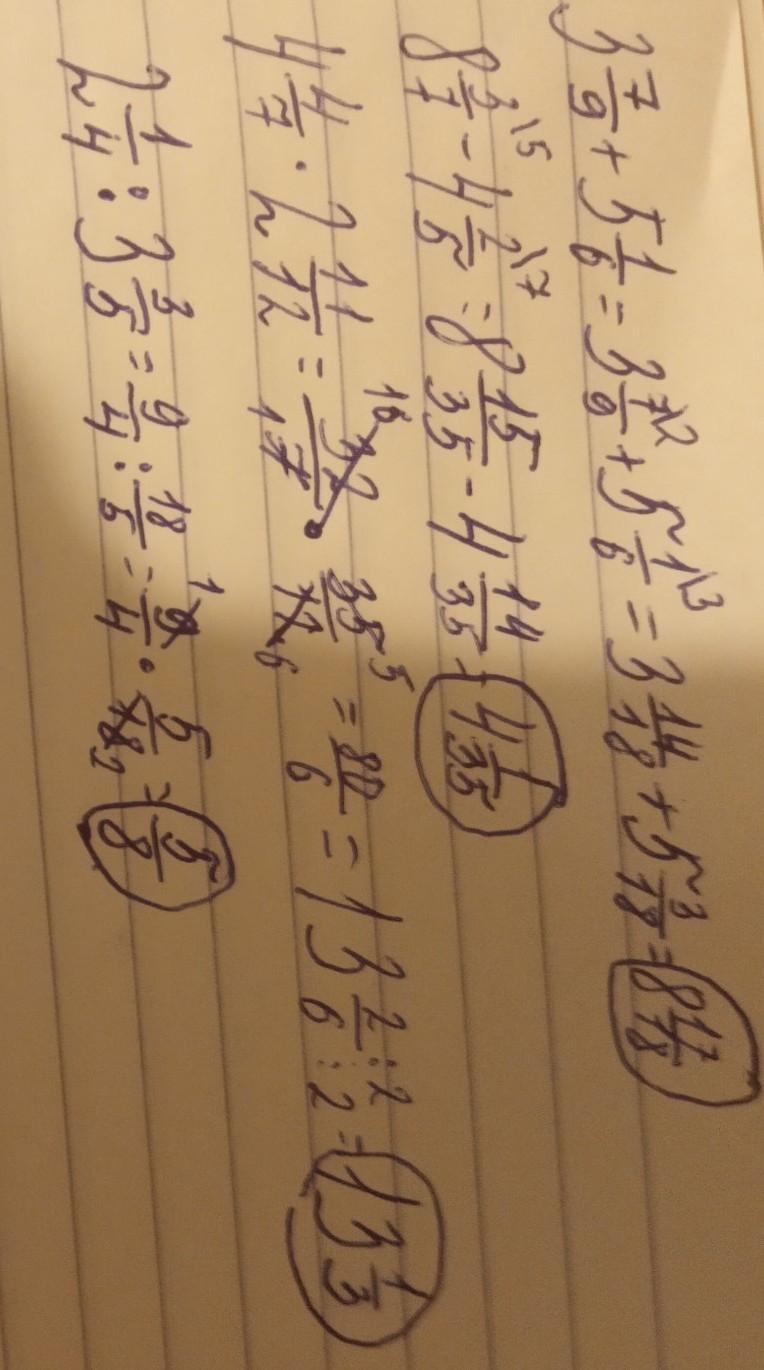 3 7/9 + 5 1/6 = 3 7\2/9 + 5 1\3/6 = 3 14/18 + 5 3/18 = 8 17/18
8 3\5/7 - 4 2\7/5 = 8 15/35 - 4 14/35 = 4 1/35
4 4/7 · 2 11/12 = 32 16/7 1 · 35 5/12 6 = 80/6 = 13 2/6 :2/:2 = 13 1/3
2 1/4 : 3 3/5 = 9/4 : 18/5 = 1 9/4 · 5/18 2 = 5/8